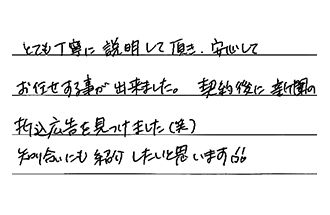 とても丁寧に説明して頂き、安心して
お任せする事が出来ました。契約後に新聞の
折込広告を見つけました(笑)
知り合いにも紹介したいと思います